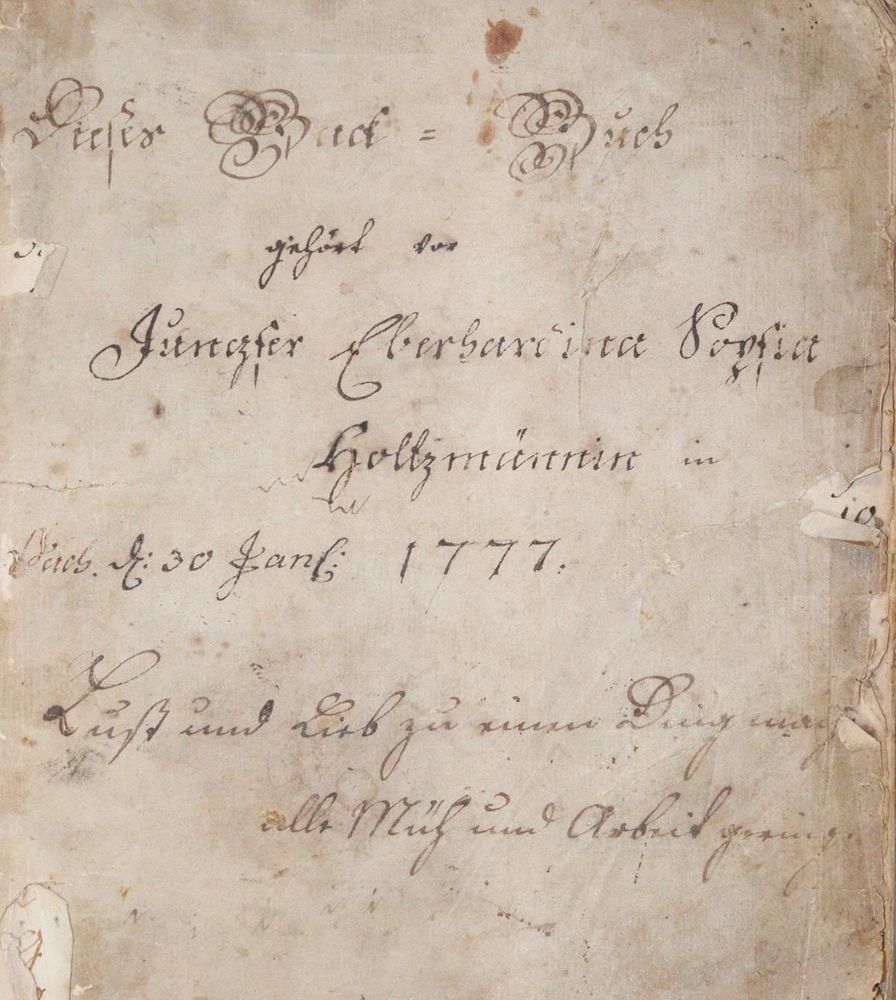 Dieses Back = Buch
gehört vor
Jungfer Eberhardina Sophia
Holtzmännin in
d: 30 Jan: 1777.
Lust und Lieb zu einen Ding mach
alle Müh und Arbeit gering.